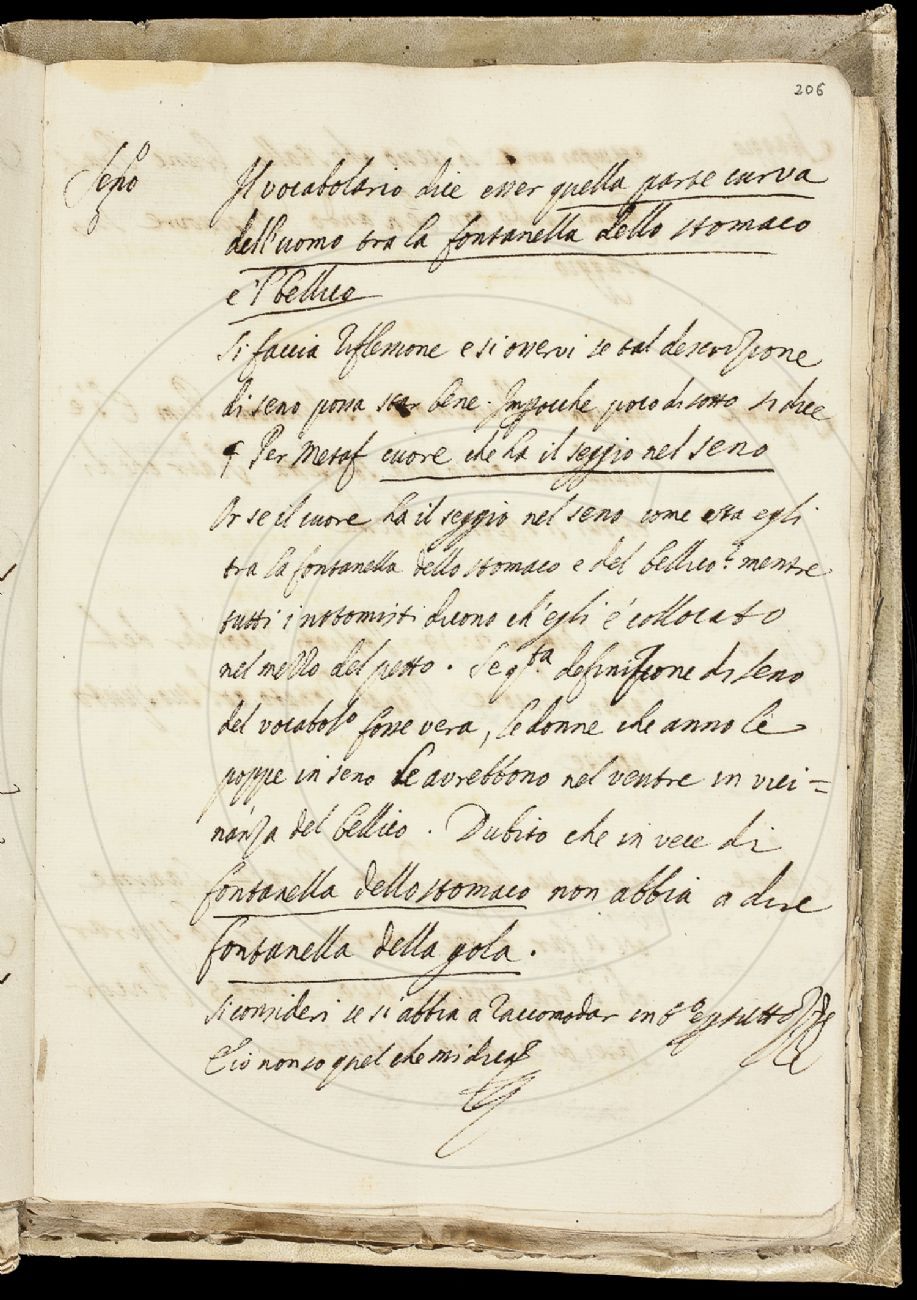 206
Seno
Il vocabolario dice esser quella parte curva
dell'uomo tra la fontanella dello stomaco
e 'l bellico
Si faccia riflessione e si osservi se tal descrizione
di seno possa star bene. Impocche poco di sotto si dice
¶ Per Metaf cuore che ha il seggio nel seno
Or se il cuore ha il seggio nel seno come sta egli
tra la fontanella dello stomaco e del bellico? mentre
tutti i notomisti dicono ch'egli è collocato
nel mezzo del petto. Se qsta definizione di seno
del vocabolo fosse vera, le donne che anno le
poppe in seno le avrebbono nel ventre in vici=
nanza del bellico. Dubito che in vece di
fontanella dello stomaco non abbia a dire
fontanella della gola.
Si consideri se si abbia a raccomodar
E io non so quel che mi dica